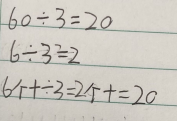 60÷3=20
6÷3=2
6个十÷3=2个十=20